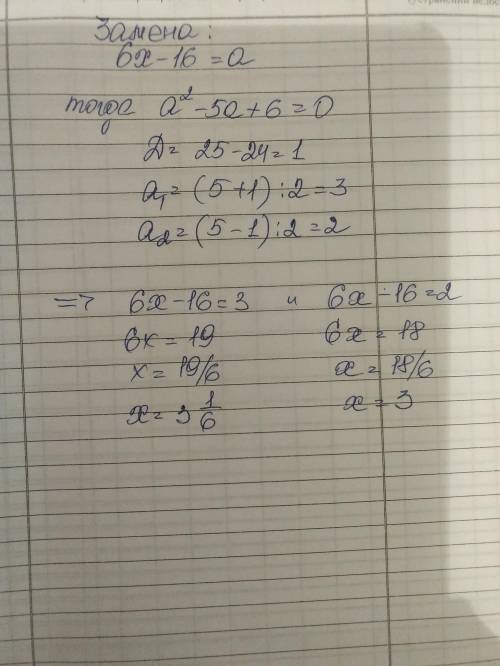 Замена:
6x-16=a
тогда a²-5a+6=0
Д= 25-24=1
a₁=(5+1):2=3
a₂=(5-1):2=2
=> 6x-16=3 и 6x-16=2
6x=19 6x=18
x=19/6 x=18/6
x=3 1/6 x=3